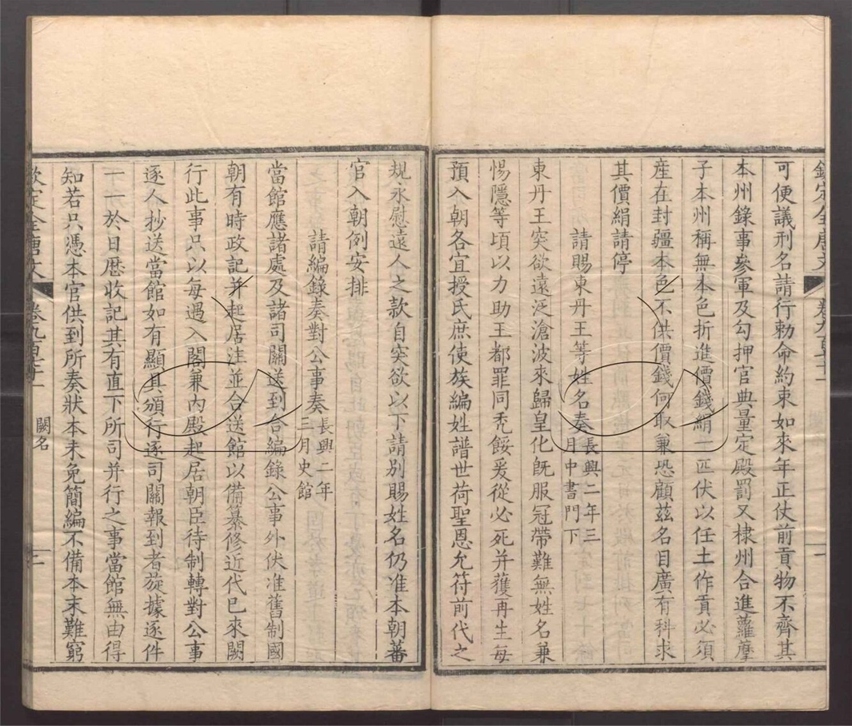 可便議刑名請行勅命約束如來年正仗前貢物不齊其
本州錄事參軍及勾押官典量定殿罰又棣州合進蘿藦
子本州稱無本色折進價錢絹一匹伏以任土作貢必須
產在封疆本色不供價錢何取兼恐顧茲名目廣有科求
其價絹請停
請賜東丹王等姓名奏長興二年三月中書門下
東丹王突欲遠泛滄波來歸皇化旣服冠帶難無姓名兼
惕隱等頃以力助王都罪同禿餒爰從必死并獲再生每
預入朝各宜授氏庶使族編姓譜世荷聖恩允符前代之
規永慰遠人之款自突欲以下請別賜姓名仍准本朝蕃
官入朝例安排
請編錄奏對公事奏長興二年三月史館
當館應諸處及諸司關送到合編錄公事外伏准舊制國
朝有時政記并起居注並合送館以備纂修近代已來闕
行此事只以每遇入閣兼內殿起居朝臣待制轉對公事
逐人抄送當館如有顯其頒行逐司關報到者旋據逐件
一一於日曆收記其有直下所司并行之事當館無由得
知若只憑本官供到所奏狀本未免簡編不備本末難窮
欽定全唐文 卷九百七十一 闕名 二